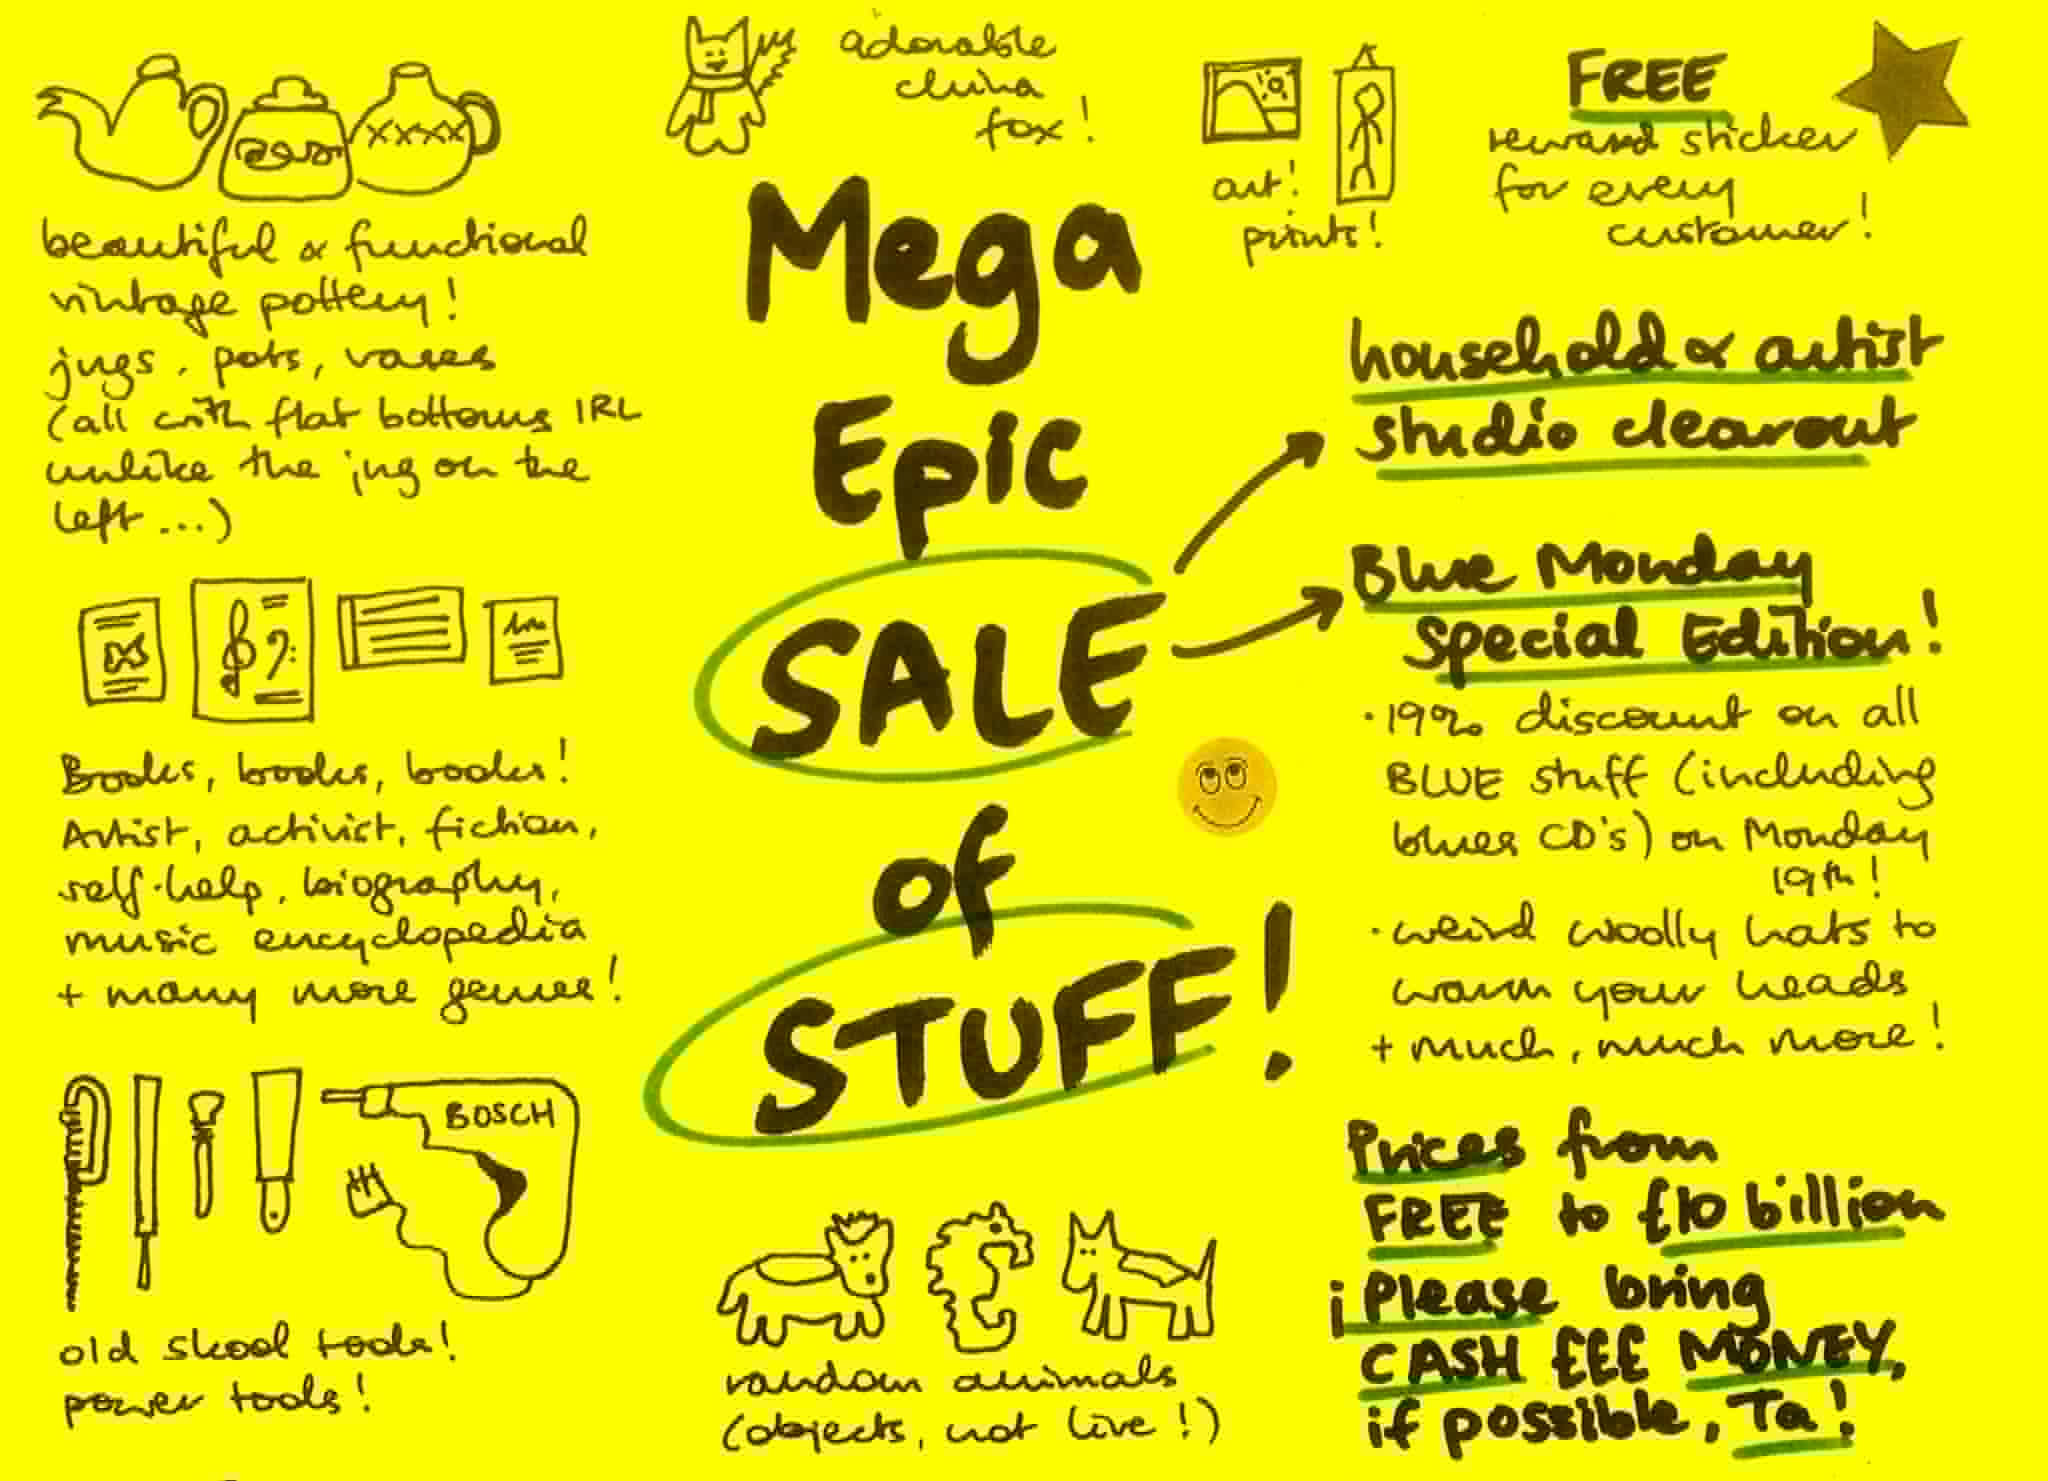 beautiful & functional
vintage pottery!
jugs, pots, vases
(all with flat bottoms IRL
unlike the jug on the
left...)
Books, books, books!
Artist, activist, fiction,
self-help, biography,
music encyclopedia
+ many more genres!
BOSCH
old skool tools!
power tools!
adorable
china
fox!
Mega
Epic
SALE
of
STUFF!
random animals
(objects, not live!)
art!
prints!
FREE
reward sticker
for every
customer!
household & artist
studio clearout
Blue Monday
Special Edition!
· 19% discount on all
BLUE stuff (including
blues CD's) on Monday
19th!
· weird woolly hats to
warm your heads
+ much, much more!
Prices from
FREE to £10 billion
¡Please bring
CASH £££ MONEY,
if possible, Ta!